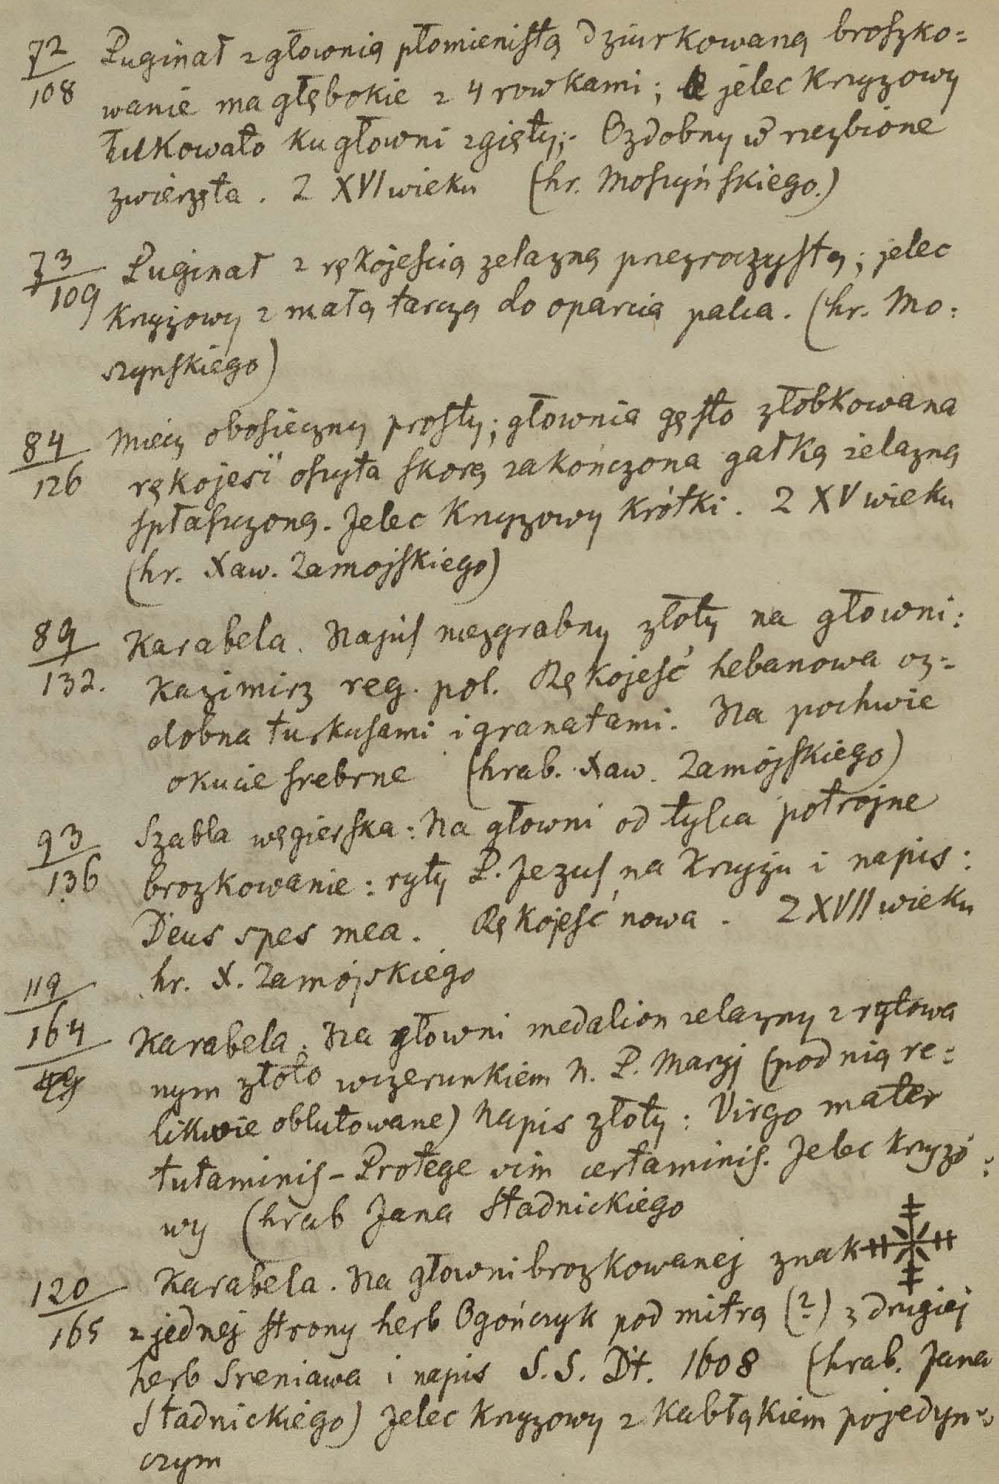 72/108 Puginał z głownią płomienistą dziurkowaną broszko=
wanie ma głębokie z 4 rowkami; jelec krzyzowy
łukowato ku głowni zgięty;- Ozdobny w rzezbione
zwierzęta. Z XVI wieku (hr. Moszyńskiego.)
73/109 Puginał z rękojescią zelazną przezroczystą; jelec
krzyzowy z małą tarczą do oparcia palca. (hr. Mo=
szynskiego)
84/126 Miecz obosieczny prosty; głownia gęsto złobkowana
rękojesć oszyta skorą zakończona gałką zelazną
spłaszczoną. Jelec krzyzowy krótki. Z XV wieku
(hr. Xaw. Zamojskiego)
89/132. Karabela. Napis niezgrabny złoty na głowni:
Kazimirz reg. pol. Rękojeść hebanowa oz=
dobna turkusami i granatami. Na pochwie
okucie srebrne (hrab. Xaw. Zamójskiego)
93/136 Szabla węgierska: Na głowni od tylca potrojne
brozkowanie: ryty P. Jezus na krzyżu i napis:
Deus spes mea. Rękojeść nowa. Z XVII wieku
hr. X. Zamójskiego
119/164 Karabela. Na głowni medalion zelazny z rytowa
nym złoto wizerunkiem N. P. Maryj (pod nią re=
likwie oblutowane) Napis złoty: Virgo mater
tutaminis - Protege vim certaminis. Jelec krzyzó=
wy (hrab Jana Stadnickiego
120/165 Karabela. Na głowni brozkowanej znak
z jednej strony herb Ogończyk pod mitrą (?) z drugiej
herb Sreniawa i napis S. S. Dt. 1608 (hrab. Jana
Stadnickiego) Jelec krzyzowy z kabłąkiem pojedyn=
czym